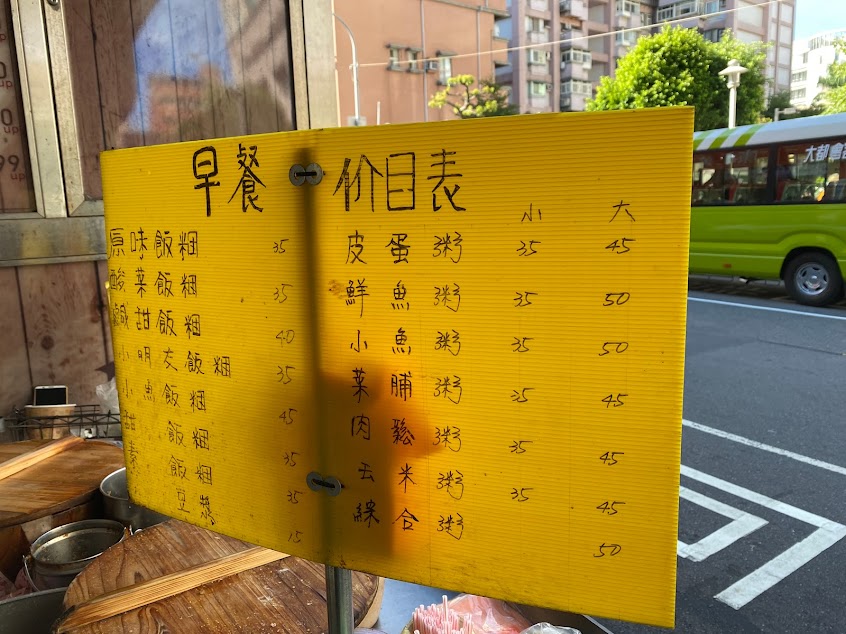 早餐 价目表
小 大
原味飯粡 35
酸菜飯粡 35
鹹甜飯粡 40
小明友飯粡 35
小魚飯粡 45
甜 飯粡 35
素 飯粡 35
豆漿 15
皮蛋粥 35 45
鮮魚粥 35 50
小魚粥 35 50
菜脯粥 35 45
肉鬆粥 35 45
云米粥 35 45
綜合粥 50
大都會